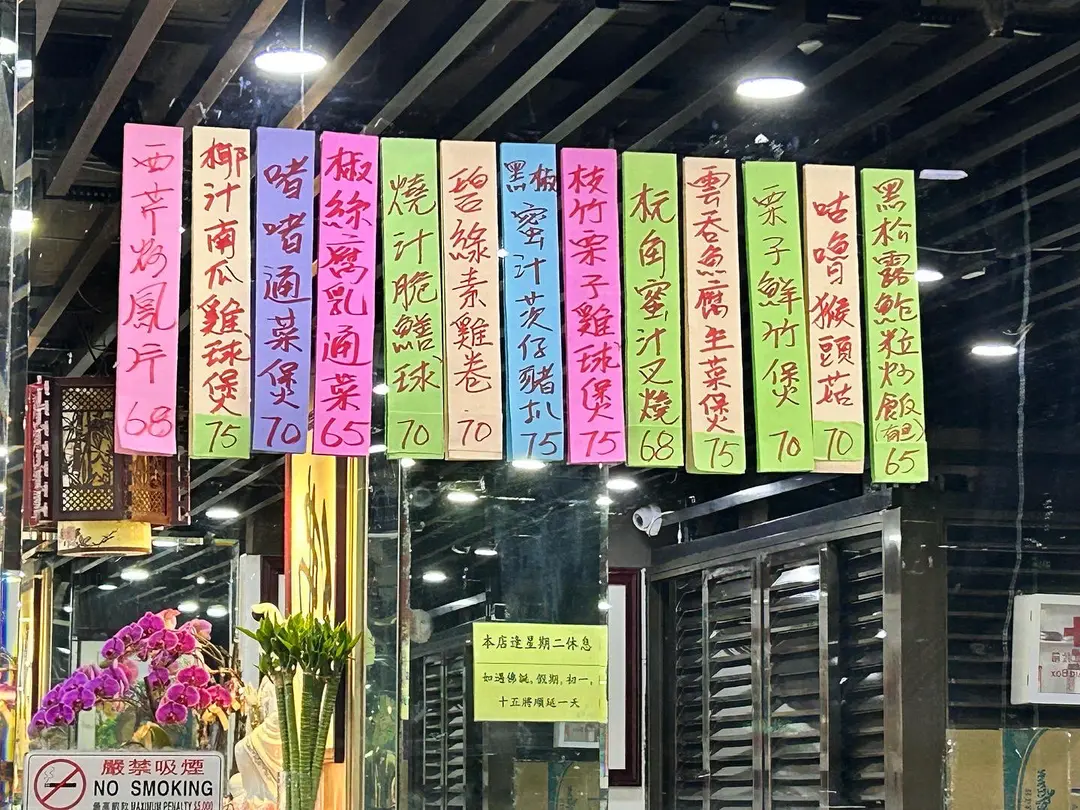 西芹炒鳳片 68
椰汁南瓜雞球煲 75
啫啫通菜煲 70
椒絲腐乳通菜 65
燒汁脆鱔球 70
碧綠素雞卷 70
黑椒蜜汁茨仔豬扒 75
枝竹栗子雞球煲 75
杬角蜜汁叉燒 68
雲吞魚腐生菜煲 75
栗子鮮竹煲 70
咕嚕猴頭菇 70
黑松露鮑粒炒飯(有旦) 65
本店逢星期二休息
如遇佛誕,假期,初一,
十五將順延一天
嚴禁吸煙
NO SMOKING
最高罰款 MAXIMUM PENALTY $5,000